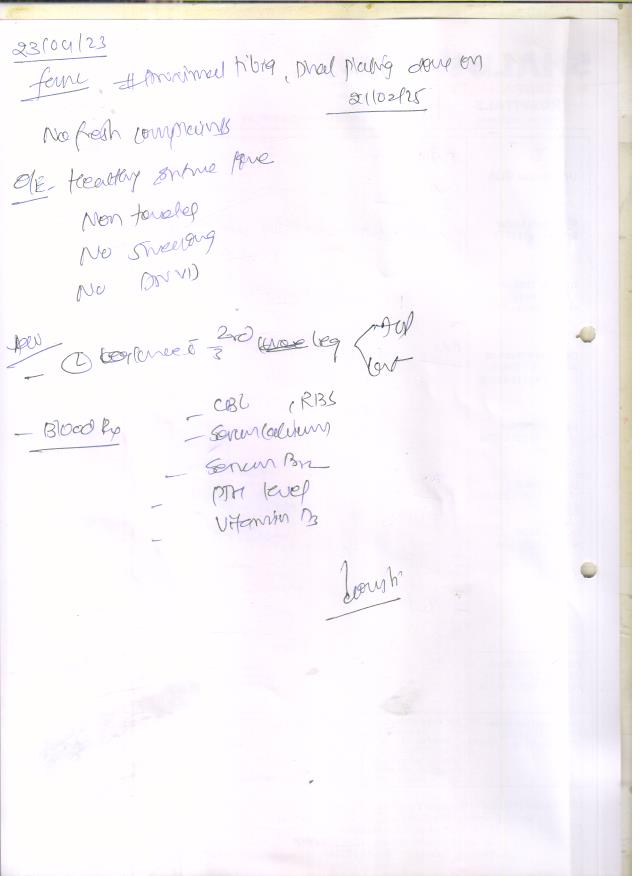 23/04/23
# Proximal tibia, Dual plating done on
21/02/25
No fresh complaints
O/E - Healthy suture line
Non tender
No swelling
No DNVD
Adv
- (L) knee 2rd/3 leg AP
Lat
- Blood Rx - CBC, RBS
- Serum Calcium
- Serum B12
- PTH level
- Vitamin D3